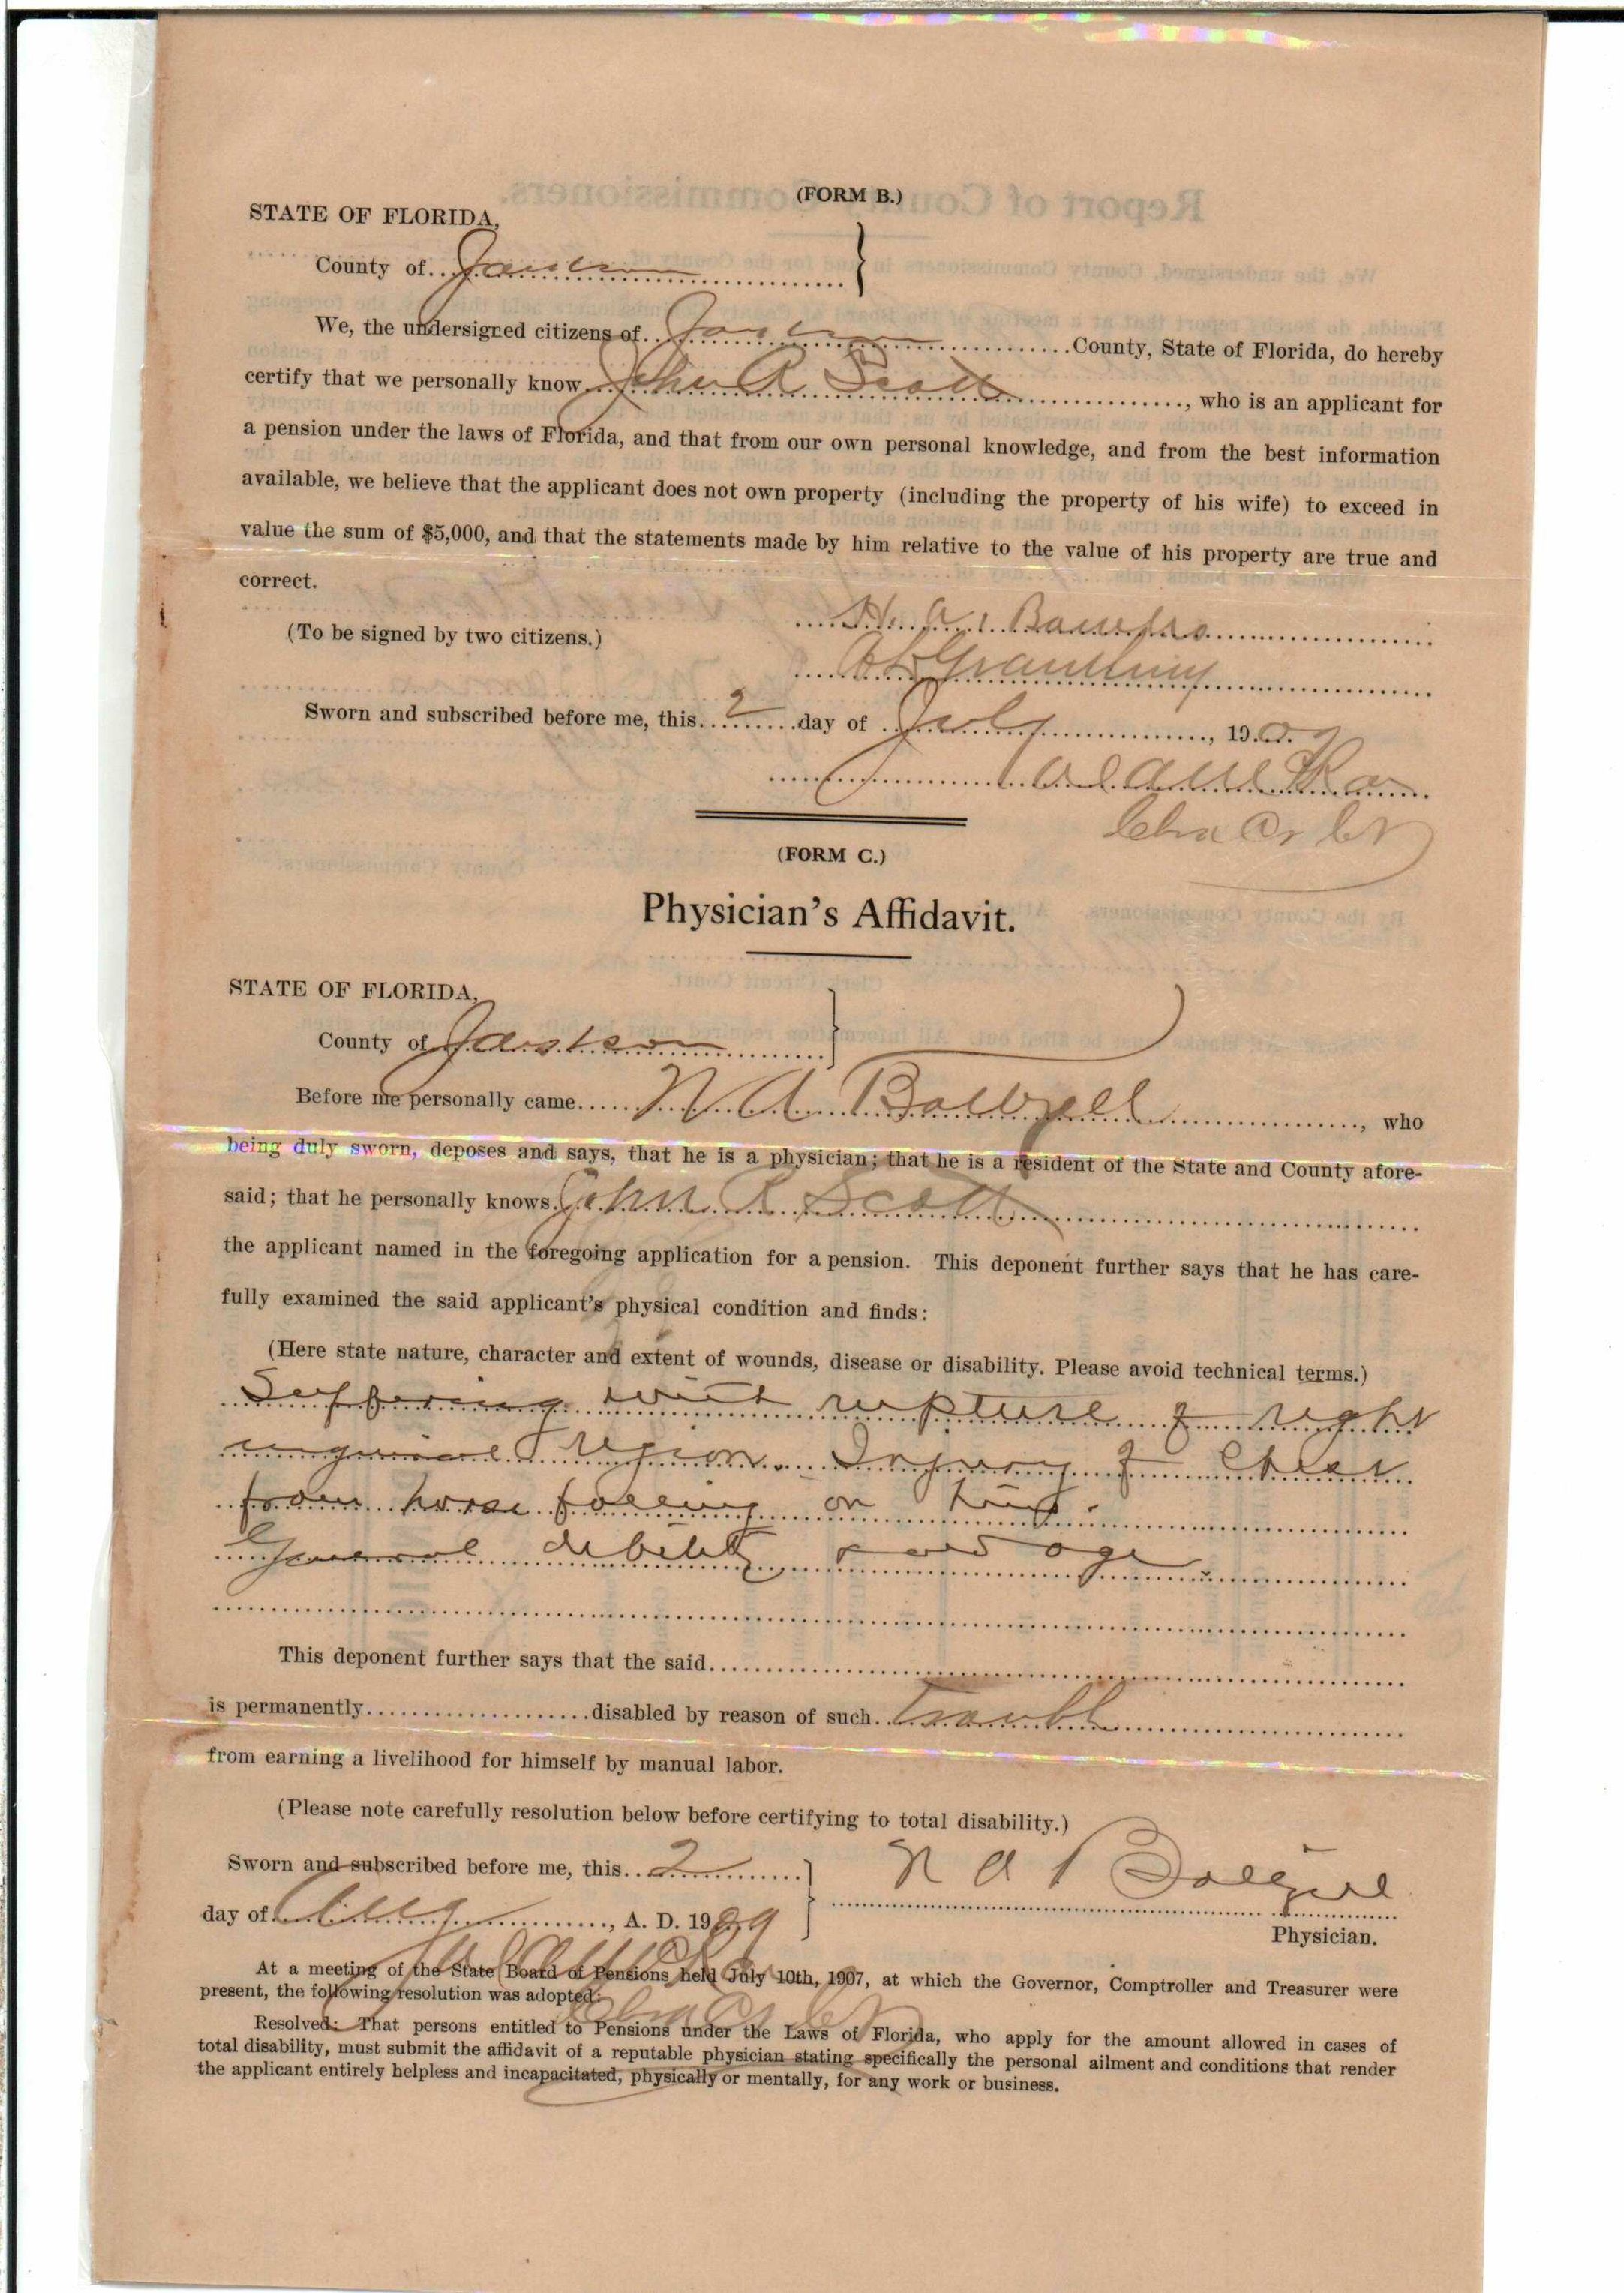 (FORM B.)
STATE OF FLORIDA,
County of Jackson
We, the undersigned citizens of Jackson County, State of Florida, do hereby
certify that we personally know John R Scott, who is an applicant for
a pension under the laws of Florida, and that from our own personal knowledge, and from the best information
available, we believe that the applicant does not own property (including the property of his wife) to exceed in
value the sum of $5,000, and that the statements made by him relative to the value of his property are true and
correct.
H. A.
(To be signed by two citizens.)
Sworn and subscribed before me, this 2 day of July, 1909
(FORM C.)
Physician's Affidavit.
STATE OF FLORIDA,
County of Jackson
Before me personally came N A Baltzell, who
being duly sworn, deposes and says, that he is a physician; that he is a resident of the State and County afore-
said; that he personally knows John R Scott
the applicant named in the foregoing application for a pension. This deponent further says that he has care-
fully examined the said applicant's physical condition and finds:
(Here state nature, character and extent of wounds, disease or disability. Please avoid technical terms.)
Suffering with rupture of right
inguinal region. Injury of Chest
from horse falling on him.
General debility & old age.
This deponent further says that the said
is permanently disabled by reason of such trouble
from earning a livelihood for himself by manual labor.
(Please note carefully resolution below before certifying to total disability.)
Sworn and subscribed before me, this 2
N A Baltzell
day of Aug, A. D. 1909
Physician.
At a meeting of the State Board of Pensions held July 10th, 1907, at which the Governor, Comptroller and Treasurer were
present, the following resolution was adopted:
Resolved: That persons entitled to Pensions under the Laws of Florida, who apply for the amount allowed in cases of
total disability, must submit the affidavit of a reputable physician stating specifically the personal ailment and conditions that render
the applicant entirely helpless and incapacitated, physically or mentally, for any work or business.